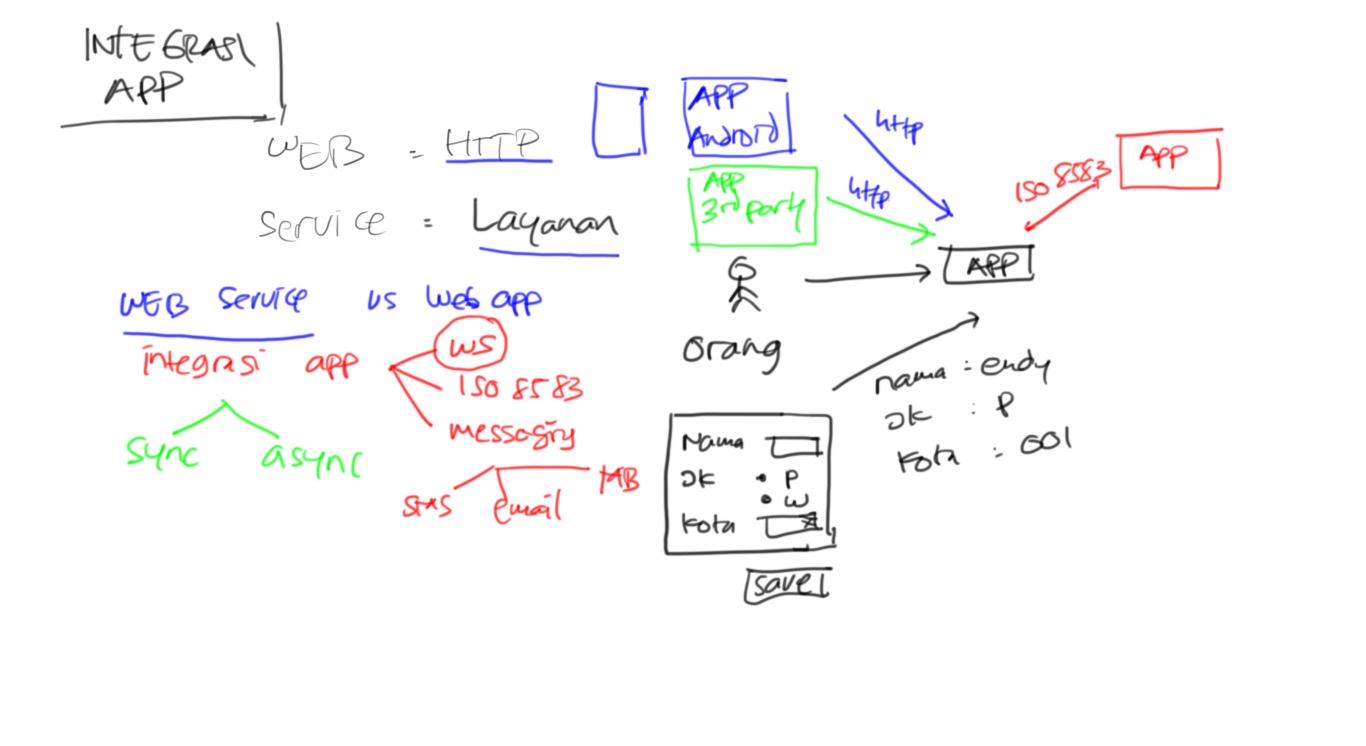 INTEGRASI
APP
WEB = HTTP
Service = Layanan
WEB Service vs Web app
integrasi app
WS
ISO 8583
messaging
sync async
SMS email MB
APP
Android
http
APP
3rd party
http
ISO 8583
APP
APP
orang
nama : endy
JK : P
Kota : 001
Nama
JK • P
• W
Kota
Save